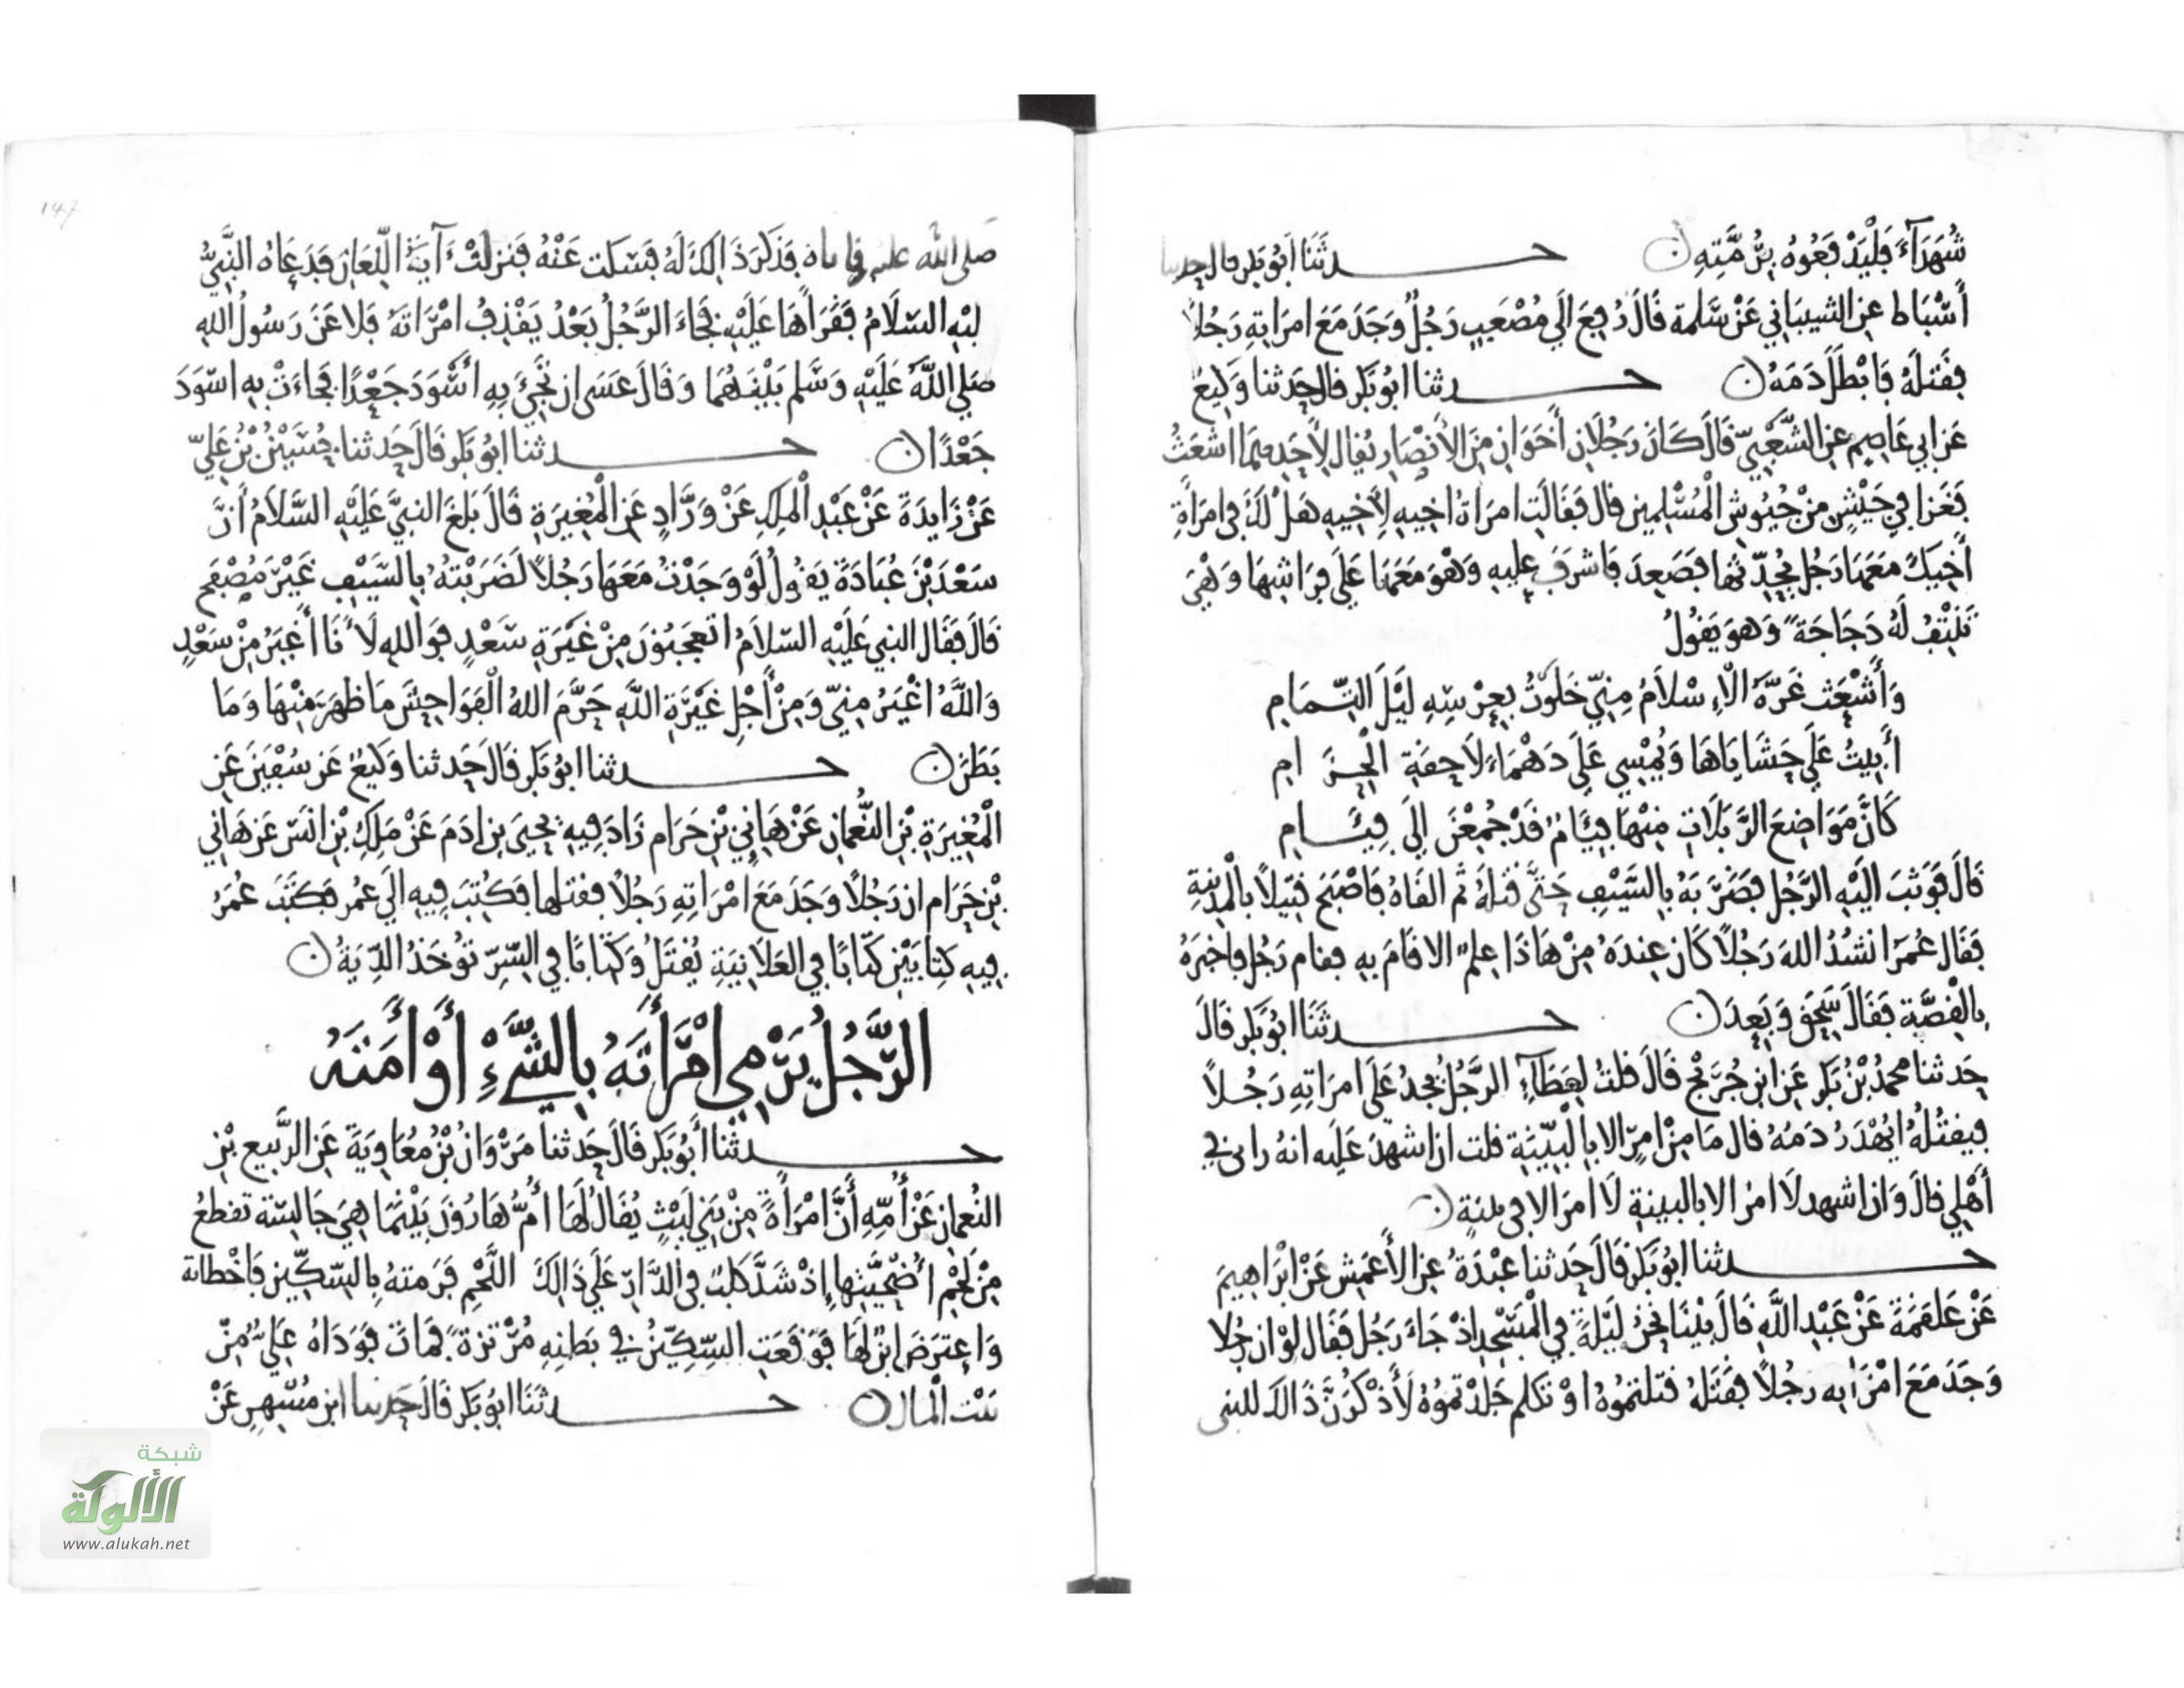 شُهَدَآءَ فَلْيَدْفَعُوهُ بِرُمَّتِهِ ن حدثَنَا أَبُو بَكر قال حدثنا
أَسْبَاط عن الشيباني عَنْ سَلمة قَالَ رُفِعَ إلَى مُصْعَبٍ رَجُلٌ وَجَدَ مَعَ امرَاتِهِ رَجُلاً
فَقَتَلَهُ فَابْطَلَ دَمَهُ ن حدثنا ابُو بَكر قال حَدثنا وَكِيعُ
عَن ابي عَاصِم عن الشَّعْبِيّ قَالَ كَانَ رَجُلاَنِ أَخَوَانِ مِنَ الأَنْصَارِ يُقال لأحَدِهِمَا اشعَثُ
فَغَزا فِي جَيْشٍ مِنْ جُيُوشِ الْمُسْلِمِين قال فَقَالَتِ امرَاةُ اخِيهِ لأَخِيهِ هَلْ لَكَ فى امرَأَةِ
أَخِيكَ مَعَهَا رَجُل يُحَدِّثُها فَصَعِدَ فَاشرَفَ عليهِ وَهْوَ مَعَهَا عَلَى فِرَاشِهَا وَهْيَ
تَنْتِفُ لَهُ دَجَاجَةً وَهوَ يَقُولُ
وَأَشْعَث غَرَّهُ الْإِسْلاَمُ مِنِّي خَلَوْتُ بِعِرْسِهِ لَيْلَ التِّمَامِ
أَبِيتُ عَلَى حَشَايَاهَا وَيُمْسِي عَلَى دَهْمَاءَ لاَحِقَةِ الْحِزَامِ
كَانَّ مَوَاضِعَ الرَّبَلاَتِ مِنْهَا فِيَّامٌ قَدْ جُمِعْنَ إلَى فِيَّامِ
قَالَ فَوَثبَ الَيْهِ الرَّجُل فَضَرَبَهُ بِالسَّيْفِ حَتَّى قَتَلَهُ ثم القَاهُ فَاصْبَحَ قَتِيلاً بالْمَدِينَةِ
فَقَال عُمَرُ انشُدُ اللهَ رَجُلاً كَان عِندَهُ مِنْ هَاذَا عِلمٌ الا قَامَ بِهِ فقام رَجُل فاخبَرَهُ
بِالْقِصَّة فَقَالَ سَحِقَ وَبَعِدَ ن حدثَنَا ابُو بَكر قَالَ
حَدثنا محمدُ بْنُ بَكر عَن ابن جُرَيْج قَالَ قلتُ لِعَطَآءِ الرَّجُلُ يَجِدُ عَلَى امرَاتِهِ رَجُلاً
فَيَقتُلُهُ ايُهْدَرُ دَمُهُ قال مَا مِنْ امرٍ الا بِالْبَيِّنَةِ قلت ان اشهدَ عَلَيه انهُ رانى فِي
أَهْلِي قَالَ وَان اشهد لاَ امرَ الا بالبينةِ لاَ امرَ الا فى بينةٍ ن
حدثنا ابُو بَكر قَالَ حَدثنا عَبْدَةُ عن الأَعمَش عَنْ ابْرَاهِيمَ
عَنْ عَلقَمَةَ عَنْ عَبْدِ اللَّهِ قَالَ بَيْنَا نَحْنُ لَيْلَةً فِي الْمَسْجِدِ اذْ جَاءَ رَجُل فَقَال لوْ ان رجُلا
وَجَدَ مَعَ امْرَاتِهِ رَجُلاً فَقَتَلَهُ قَتَلتمُوهُ اوْ تَكلم جَلدْتمُوهُ لأَذْكُرَنَّ ذَالكَ للنبى
147
صَلى الله عليه فَذَكَرَ ذَالِكَ لَهُ فَسَكَت عَنْهُ فَنزلَتْ ءَايَةُ اللِّعَانِ فَدَعَاهُ النَّبِيُّ
عليْهِ السّلاَمُ فَقَرَاهَا عَلَيْهِ فَجَاءَ الرَّجُلُ بَعْدُ يَقْذِفُ امْرَاتَهُ فَلاعَنَ رَسُولُ اللهِ
صَلى اللَّهُ عَلَيْهِ وَسَّلم بَيْنَهُمَا وَقَالَ عَسَى ان تَجِيْءَ بِهِ أَسْوَدَ جَعْدًا فَجَاءَتْ بِهِ اسْوَدَ
جَعْدًا ن حدثنا ابُو بَكر قَالَ حَدثنا حُسَيْنُ بْنُ عَلِيّ
عَنْ زَايدَةَ عَنْ عَبْدِ الْمَلِكِ عَنْ وَرَّادٍ عَنِ الْمُغِيرَةِ قَالَ بَلغَ النبيَّ عَلَيْهِ السَّلاَمُ أَنَّ
سَعْدَ بْنَ عُبَادَةَ يَقُولُ لَوْ وَجَدْتُ مَعَهَا رَجُلاً لَضَرَبْتهُ بِالسَّيْفِ غَيْرَ مُصْفِحٍ
قَالَ فَقَال النبي عَلَيْهِ السّلاَمُ اتعجَبُونَ مِنْ غَيْرَةِ سَعْدٍ فوَاللهِ لاَنَا أَغيَرُ مِنْ سَعْدٍ
وَاللَّهُ اغْيَرُ مِنِّي وَمِنْ أَجْلِ غَيْرَةِ اللَّهِ حَرَّمَ اللهُ الْفَوَاحِشَ مَا ظَهَرَ مِنْهَا وَمَا
بَطَنَ ن حدثنا ابُو بَكر قَالَ حَدثنا وَكيعُ عَن سُفْيَنَ عَنِ
الْمُغِيرَةِ بْنِ النُّعْمَانِ عَنْ هَانِي بْنِ حَرَام زَادَ فِيهِ يَحيَى بن ادَمَ عَنْ مَلِكِ بْنِ انَس عَن هَانِي
بْنِ حَرَام ان رَجُلاً وَجَدَ مَعَ امْرَاتِهِ رَجُلاً فَقتلها فكُتِبَ فِيهِ الَى عُمر فَكَتَبَ عُمَرُ
فِيهِ كِتابَيْنِ كتَابًا فِي العَلاَنِيَةِ يُقتَلُ وَكتَابًا فِي السِّرِّ تؤْخَذُ الدِّيَةُ ن
الرَّجُلُ يَرْمِي امْرَأَتَهُ بِالشَّيْءِ أَوْ أَمَتَهُ
حدثنا أَبُو بَكر قَالَ حَدثنا مَرْوَانُ بْنُ مُعَاوِيَةَ عَنِ الرَّبِيع بْنِ
النُعمان عَنْ أُمِّهِ أَنَّ امْرَأَةً مِنْ بَنِي لَيْثٍ يُقَالُ لَهَا أُمُّ هَارُونَ بَيْنَمَا هِيَ جَالِسَة تقطعُ
مِنْ لَحْمِ أُضْحِيَّتِها إِذْ شَدَّ كَلبٌ فِي الدَّارِ عَلَى ذَالِكَ اللَّحْمِ فَرَمتهُ بِالسّكِّين فَاخْطَاتهُ
وَاعتَرَضَ ابْنٌ لَهَا فَوَقَعَتِ السِّكِّينُ فِي بَطنِهِ مُرْتزةً فَمَاتَ فَوَدَاهُ عَلِيٌّ مِنْ
بَيْت الْمَال ن حدثَنَا ابُو بَكر قَالَ حَدثنا ابن مُسْهِرٍ عَنْ
شبكة
الألوكة
www.alukah.net